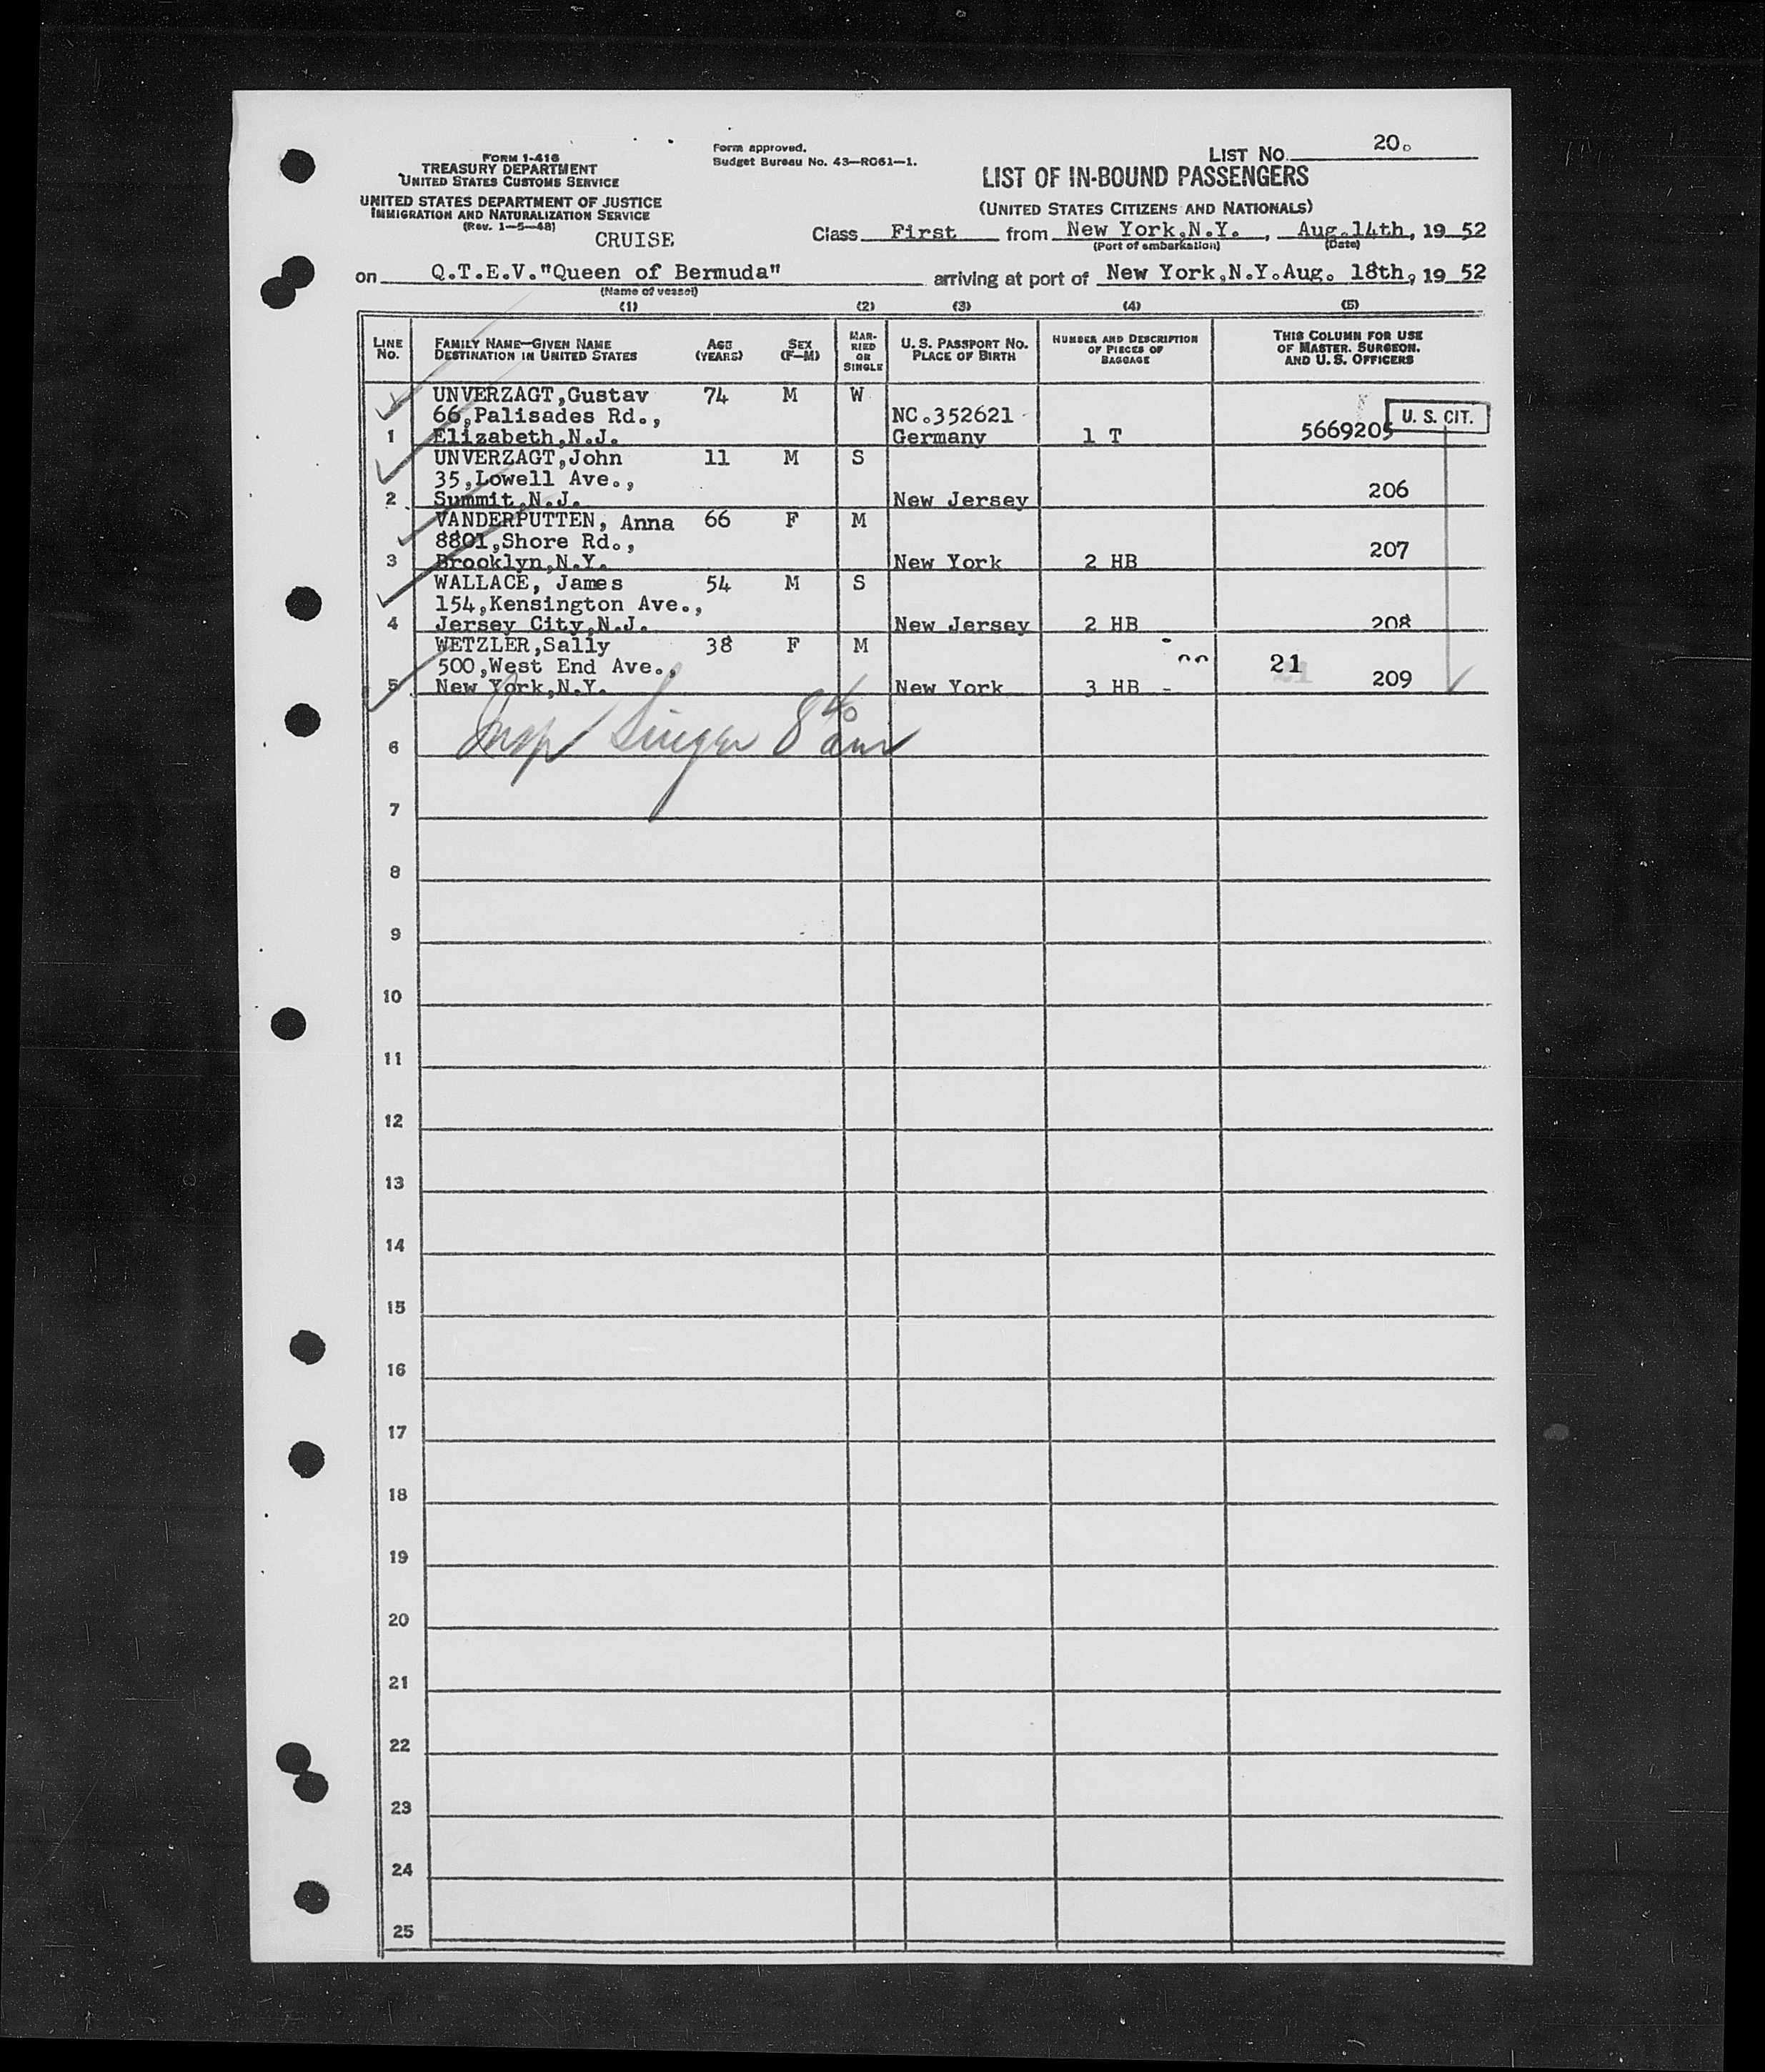 LIST NO. 20.
FORM I-416
TREASURY DEPARTMENT
UNITED STATES CUSTOMS SERVICE
UNITED STATES DEPARTMENT OF JUSTICE
IMMIGRATION AND NATURALIZATION SERVICE
(Rev. 1-5-48)
Form approved.
Budget Bureau No. 43-R061-1.
LIST OF IN-BOUND PASSENGERS
(UNITED STATES CITIZENS AND NATIONALS)
CRUISE
Class First from New York,N.Y. , Aug.14th, 19 52
(Port of embarkation) (Date)
on Q.T.E.V."Queen of Bermuda" arriving at port of New York,N.Y.Aug. 18th, 19 52
(Name of vessel)
(1) (2) (3) (4) (5)
LINE No. FAMILY NAME—GIVEN NAME DESTINATION IN UNITED STATES AGE (YEARS) SEX (F—M) MARRIED OR SINGLE U. S. PASSPORT NO. PLACE OF BIRTH NUMBER AND DESCRIPTION OF PIECES OF BAGGAGE THIS COLUMN FOR USE OF MASTER, SURGEON, AND U. S. OFFICERS
UNVERZAGT,Gustav 74 M W
66,Palisades Rd., NC.352621 U. S. CIT.
1 Elizabeth,N.J. Germany 1 T 5669205
UNVERZAGT,John 11 M S
35,Lowell Ave.,
2 Summit,N.J. New Jersey 206
VANDERPUTTEN, Anna 66 F M
8801,Shore Rd.,
3 Brooklyn,N.Y. New York 2 HB 207
WALLACE, James 54 M S
154,Kensington Ave.,
4 Jersey City,N.J. New Jersey 2 HB 208
WETZLER,Sally 38 F M
500,West End Ave., 21
5 New York,N.Y. New York 3 HB 209
6 Insp Singer 8 40 am
7
8
9
10
11
12
13
14
15
16
17
18
19
20
21
22
23
24
25